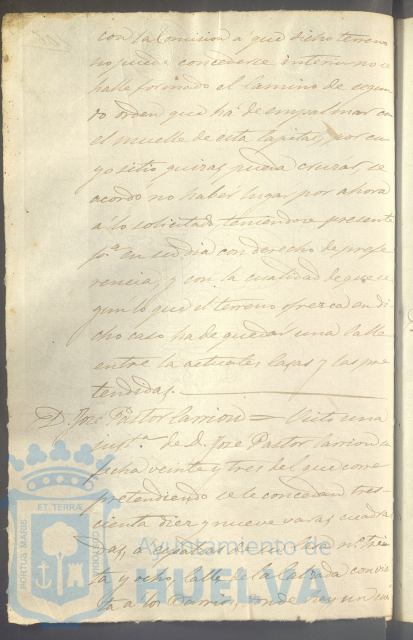 con la Comision a que dicho terreno
no puede concederse interin no se
halle formado el camino de segun-
do orden que ha de empalmar con
el muelle de esta Capital, por cu-
yo sitio quizas pueda cruzar, se
acordó no haber lugar por ahora
a lo solicitado, teniendose presente
pª en su dia con derecho de prefe-
rencia, y con la cualidad de que se-
gun lo que el terreno ofrezca en di-
cho caso ha de quedar una calle
entre la actuales casas y las pre-
tendidas.
D. José Pastor Carrion = Vista una
instª de D. José Pastor Carrion
fecha veinte y tres del que corre
pretendiendo se le concedan tres-
cienta diez y nueve varas cuadra-
das, a espaldas de su casa nº trein-
ta y ocho, calle de la Calzada con vis-
ta a los Barrios, donde hay un
PORTUS MARIS
ET TERRÆ
CUSTODIA
Ayuntamiento de
HUELVA